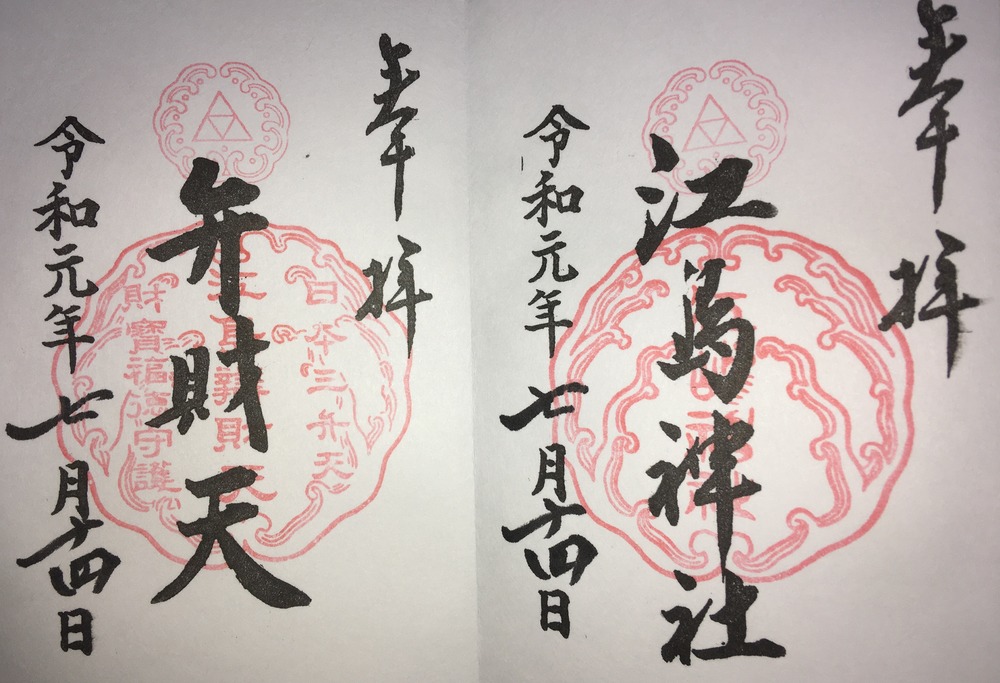 奉拝
江島神社
令和元年七月十四日
奉拝
弁財天
日本三弁天
財寶福徳守護
令和元年七月十四日